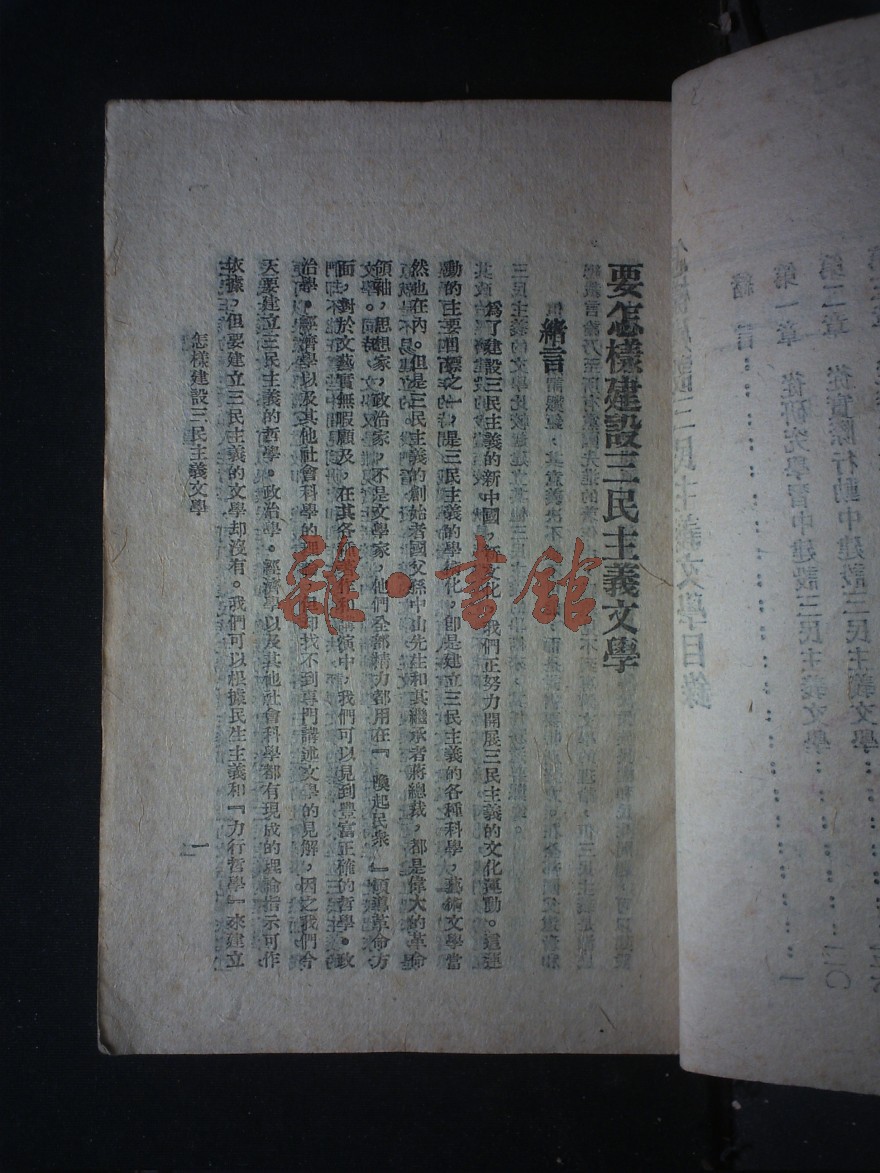 要怎樣建設三民主義文學
緒言
為了建設三民主義的新中國,新文化,我們正努力開展三民主義的文化運動。這運
動的主要目標之一,是三民主義的學術化,卽是建立三民主義的各種科學,藝術文學當
然也在內。但是三民主義的創始者國父孫中山先生和其繼承者蔣總裁,都是偉大的革命
領袖,思想家,政治家,不是文學家,他們全部精力都用在『喚起民衆』領導革命方
面,對於文藝實無暇顧及,在其各種著作和講演中,我們可以見到豐富正確的哲學。政
治學。經濟學以及其他社會科學的理論,但却找不到專門講述文學的見解,因之我們今
天要建立三民主義的哲學。政治學。經濟學以及其他社會科學都有現成的理論指示可作
依據,但要建立三民主義的文學却沒有。我們可以根據民生主義和『力行哲學』來建立
怎樣建設三民主義文學
一
雜·書館
三民主義文學目錄
緒言
一
第一章 從研究學習中建設三民主義文學
第二章 從實際行動中建設三民主義文學
二〇